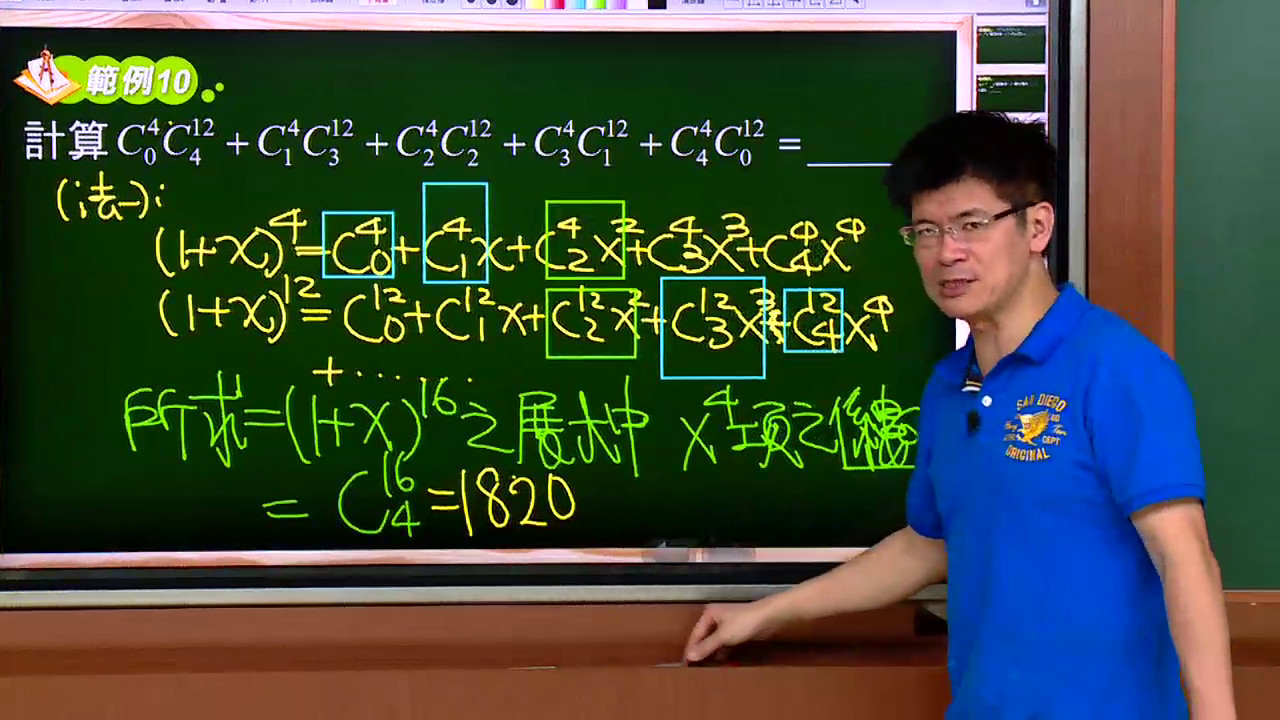 範例10
計算 C₀⁴C₄¹² + C₁⁴C₃¹² + C₂⁴C₂¹² + C₃⁴C₁¹² + C₄⁴C₀¹² = ______
(法一):
(1+x)⁴=C₀⁴+C₁⁴x+C₂⁴x²+C₃⁴x³+C₄⁴x⁴
(1+x)¹²=C₀¹²+C₁¹²x+C₂¹²x²+C₃¹²x³+C₄¹²x⁴
+......
所求=(1+x)¹⁶之展式中 x⁴項之係數
=C₄¹⁶=1820
SAN DIEGO
DEPT
ORIGINAL